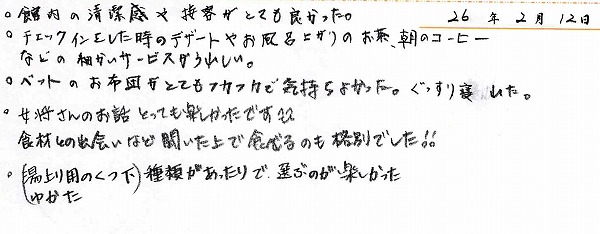 26年2月12日
○ 館内の清潔感や接客がとても良かった。
○ チェックインをした時のデザートやお風呂上がりのお茶、朝のコーヒー
などの細かいサービスがうれしい。
○ ベットのお布団がとてもフカフカで気持ちよかった。ぐっすり寝れた。
○ 女将さんのお話とっても楽しかったです!!
食材との出会いなど聞いた上で食べるのも格別でした!!
○ (湯上り用のくつ下) 種類があったりで、選ぶのが楽しかった
(ゆかた